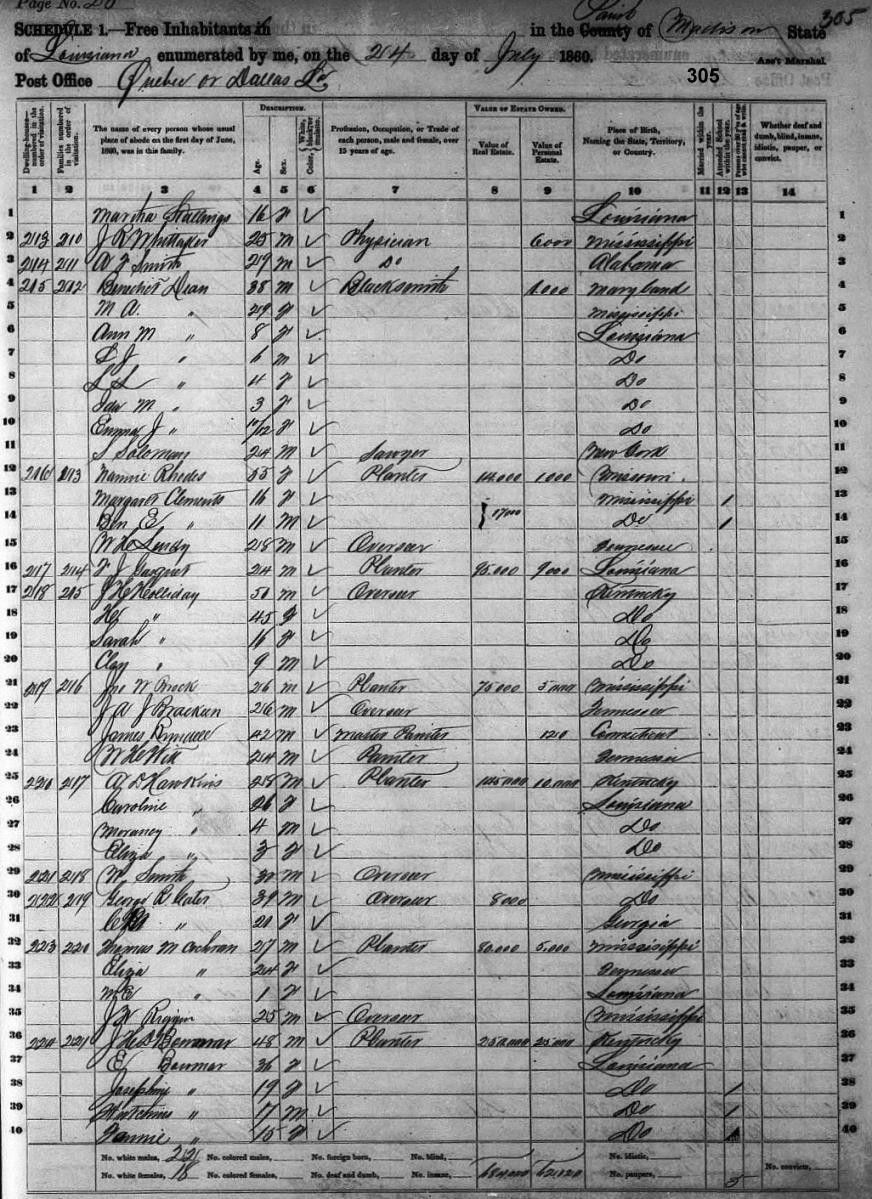 Page No. 28
305
SCHEDULE 1.—Free Inhabitants in in the County of Parish Madison State
of Louisiana enumerated by me, on the 24 day of July 1860. Ass't Marshal.
Post Office Quebec or Dallas
305
DESCRIPTION. VALUE OF ESTATE OWNED.
Dwelling-houses—numbered in the order of visitation. Families numbered in the order of visitation. The name of every person whose usual place of abode on the first day of June, 1860, was in this family. Age. Sex. Color, White, black, or mulatto. Profession, Occupation, or Trade of each person, male and female, over 15 years of age. Value of Real Estate. Value of Personal Estate. Place of Birth, Naming the State, Territory, or Country. Married within the year. Attended School within the year. Persons over 20 y'rs of age who cannot read & write. Whether deaf and dumb, blind, insane, idiotic, pauper, or convict.
1 2 3 4 5 6 7 8 9 10 11 12 13 14
1 Martha Stallings 16 f ✓ Louisiana 1
2 213 210 J R Whittaker 25 m ✓ Physician 6000 Mississippi 2
3 214 211 A J Smith 29 m ✓ Do Alabama 3
4 215 212 Benedict Dean 38 m ✓ Blacksmith 1000 Maryland 4
5 M A. " 29 f ✓ Mississippi 5
6 Ann M " 8 f ✓ Louisiana 6
7 J " 6 m ✓ Do 7
8 S " 4 f ✓ Do 8
9 Ida M " 3 f ✓ Do 9
10 Emma J " /12 f ✓ Do 10
11 S Soloman 24 m ✓ Sawyer New York 11
12 216 213 Nannie Rhodes 55 f ✓ Planter 14.000 1000 Missouri 12
13 Margaret Clements 16 f ✓ Mississippi / 13
14 Ben E " 11 m ✓ } 17000 Do / 14
15 W H Lundy 28 m ✓ Overseer Tennessee 15
16 217 214 J 24 m ✓ Planter 95.000 9000 Louisiana 16
17 218 215 J H Holliday 50 m ✓ Overseer Kentucky 17
18 " 45 f ✓ Do 18
19 Sarah " 16 f ✓ Do 19
20 Clay " 9 m ✓ Do 20
21 219 216 Jno W 26 m ✓ Planter 75000 5000 Mississippi 21
22 J A J Bracken 26 m ✓ Overseer Tennessee 22
23 James 42 m ✓ Master Painter 120 Connecticut 23
24 W H 24 m ✓ Painter Tennessee 24
25 220 217 A D Hawkins 28 m ✓ Planter 10.000 Kentucky 25
26 Caroline " 26 f ✓ Louisiana 26
27 Morancy " 4 m ✓ Do 27
28 Eliza " 3 f ✓ Do 28
29 221 218 Smith 30 m ✓ Overseer Mississippi 29
30 222 219 George R Cater 39 m ✓ Overseer 8000 Do 30
31 " 20 f ✓ Georgia 31
32 223 220 Thomas M Cochran 27 m ✓ Planter 80.000 5.000 Mississippi 32
33 Eliza " 24 f ✓ Tennessee 33
34 M E " 1 f ✓ Louisiana 34
35 J W 25 m ✓ Overseer Mississippi 35
36 224 221 J H D Bowmar 48 m ✓ Planter 250.000 25.000 Kentucky 36
37 E Bowmar 36 f ✓ Louisiana 37
38 Josephine " 19 f ✓ Do / 38
39 Hutchins " 17 m ✓ Do / 39
40 Fannie " 15 f ✓ Do / 40
No. white males, 22 No. colored males, No. foreign born, No. blind, No. idiotic, No. convicts,
No. white females, 18 No. colored females, No. deaf and dumb, No. insane, No. paupers, 5